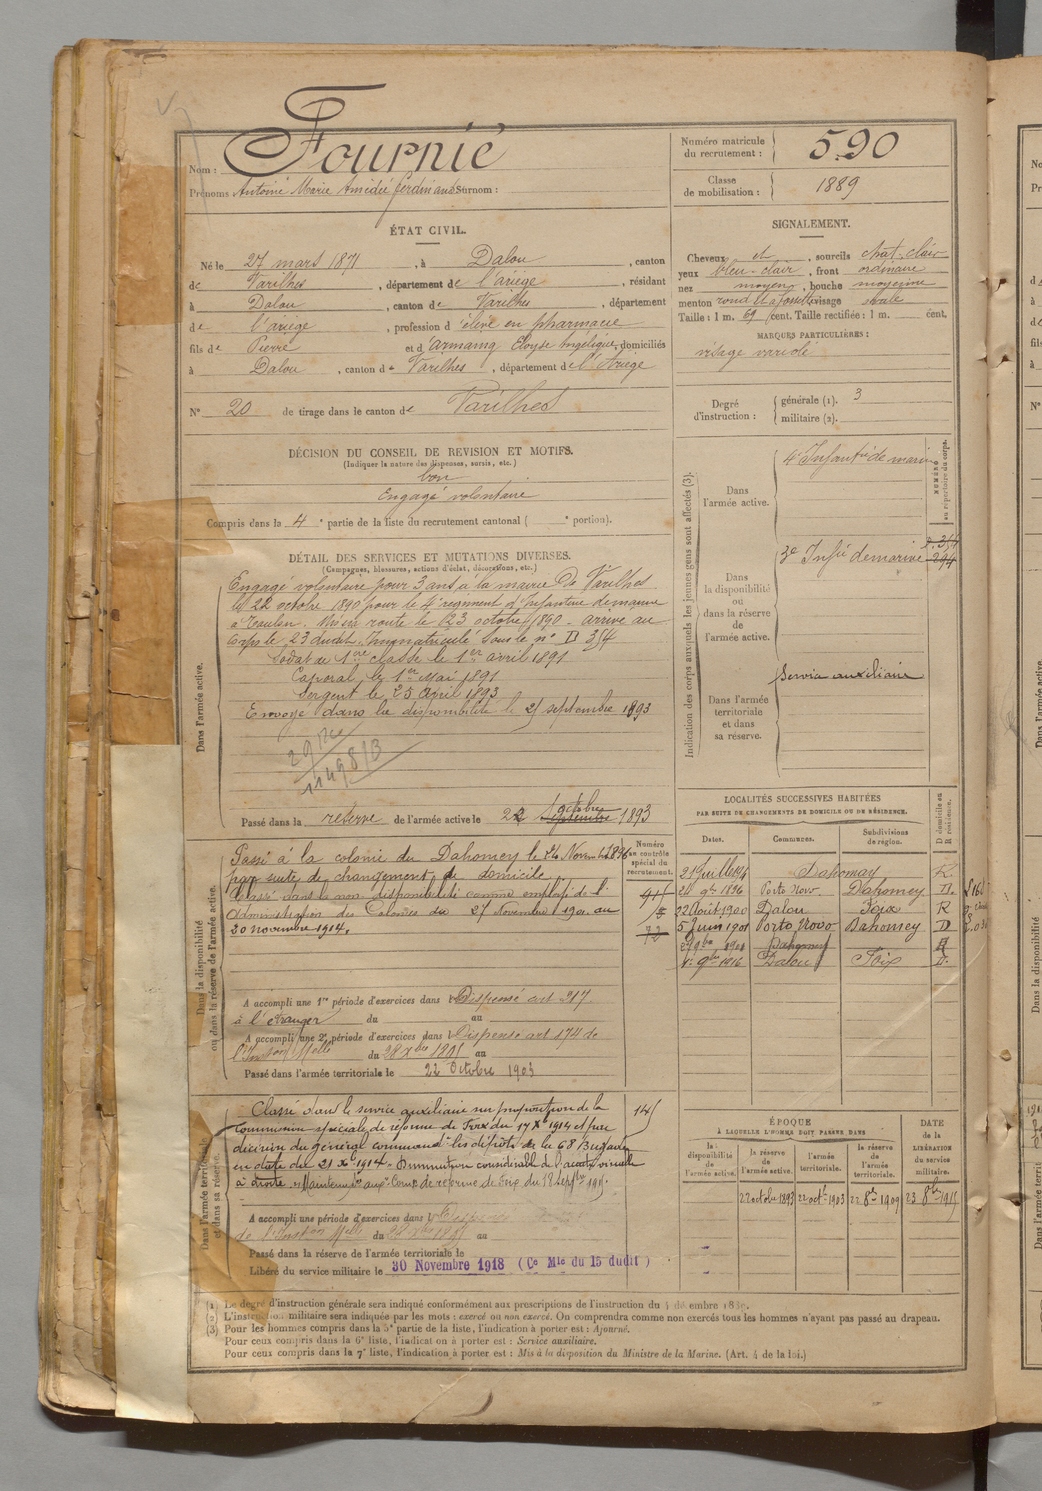 Nom : Fournié
Prénoms Antoine Marie Amédée Ferdinand Surnom :
Numéro matricule du recrutement : 590
Classe de mobilisation : 1889
ÉTAT CIVIL.
Né le 27 mars 1871, à Dalou, canton
de Varilhes, département de l'ariège, résidant
à Dalou, canton de Varilhes, département
de l'ariège, profession d'élève en pharmacie
fils de Pierre et d'Armaing Eloyse Angélique, domiciliés
à Dalou, canton de Varilhes, département de l'Ariège
N° 20 de tirage dans le canton de Varilhes
SIGNALEMENT.
Cheveux et, sourcils chat-clair
yeux bleu-clair, front ordinaire
nez moyen, bouche moyenne
menton rond et à fossette visage ovale
Taille : 1 m. 69 cent. Taille rectifiée : 1 m. cent.
MARQUES PARTICULIÈRES :
visage variolé
Degré d'instruction : générale (1). 3
militaire (2).
DÉCISION DU CONSEIL DE REVISION ET MOTIFS.
(Indiquer la nature des dispenses, sursis, etc.)
bon
Engagé volontaire
Compris dans la 4e partie de la liste du recrutement cantonal ( e portion).
DÉTAIL DES SERVICES ET MUTATIONS DIVERSES.
(Campagnes, blessures, actions d'éclat, décorations, etc.)
Dans l'armée active.
Engagé volontaire pour 3 ans à la mairie de Varilhes
le 22 octobre 1890 pour le 4e régiment d'Infanterie de marine
à Toulon. Mis en route le 23 octobre 1890 - arrivé au
corps le 23 dudit. Immatriculé sous le n° D 354
Soldat de 1ère classe le 1er avril 1891
Caporal le 1er Mai 1891
Sergent le 25 Avril 1893
Envoyé dans la disponibilité le 21 septembre 1893
Passé dans la réserve de l'armée active le 22 septembre octobre 1893
Indication des corps auxquels les jeunes gens sont affectés (3).
NUMÉRO au répertoire du corps.
Dans l'armée active.
4e Infantrie de marine
Dans la disponibilité ou dans la réserve de l'armée active.
3e Infie de marine
Dans l'armée territoriale et dans sa réserve.
Service auxiliaire
Dans la disponibilité ou dans la réserve de l'armée active.
Numéro au contrôle spécial du recrutement.
Passé à la colonie du Dahomey le 24 Novembre 1896
par suite de changement de domicile.
Classé dans la non disponibilité comme employé de l'
Administration des Colonies du 27 Novembre 1901 au
30 novembre 1914.
A accompli une 1re période d'exercices dans Dispensé art 217
à l'étranger du au
A accompli une 2e période d'exercices dans Dispensé art 174 de
l'Inston Melle du 28 Xbre 1895 au
Passé dans l'armée territoriale le 22 Octobre 1903
LOCALITÉS SUCCESSIVES HABITÉES
PAR SUITE DE CHANGEMENTS DE DOMICILE OU DE RÉSIDENCE.
Dates. Communes. Subdivisions de région. D domicile ou R résidence.
Dahomey R.
9bre 1896 Porto Novo Dahomey D.
22 Août 1900 Dalou Foix R
5 Juin 1901 Porto Novo Dahomey D
Dahomey
9bre 1916 Dalou Foix D.
Dans l'armée territoriale et dans sa réserve.
Classé dans le service auxiliaire sur proposition de la 145
Commission spéciale de réforme de Foix du 17 Xbre 1914 et par
décision du général commandt les dépôts de la 68e Brigade
en date du 21 Xbre 1914. Diminution considérable de l'acuité visuelle
à droite. Maintenu
A accompli une période d'exercices dans l
de l'Inston Melle du au
Passé dans la réserve de l'armée territoriale le
Libéré du service militaire le 30 Novembre 1918 (Ce Mle du 15 dudit)
ÉPOQUE
À LAQUELLE L'HOMME DOIT PASSER DANS
la disponibilité de l'armée active. la réserve de l'armée active. l'armée territoriale. la réserve de l'armée territoriale.
DATE de la LIBÉRATION du service militaire.
22 octobre 1893 22 octb 1903 22 8bre 1909 23 8bre 1915
(1) Le degré d'instruction générale sera indiqué conformément aux prescriptions de l'instruction du 4 décembre 1889.
(2) L'instruction militaire sera indiquée par les mots : exercé ou non exercé. On comprendra comme non exercés tous les hommes n'ayant pas passé au drapeau.
(3) Pour les hommes compris dans la 5e partie de la liste, l'indication à porter est : Ajourné.
Pour ceux compris dans la 6e liste, l'indication à porter est : Service auxiliaire.
Pour ceux compris dans la 7e liste, l'indication à porter est : Mis à la disposition du Ministre de la Marine. (Art. 4 de la loi.)